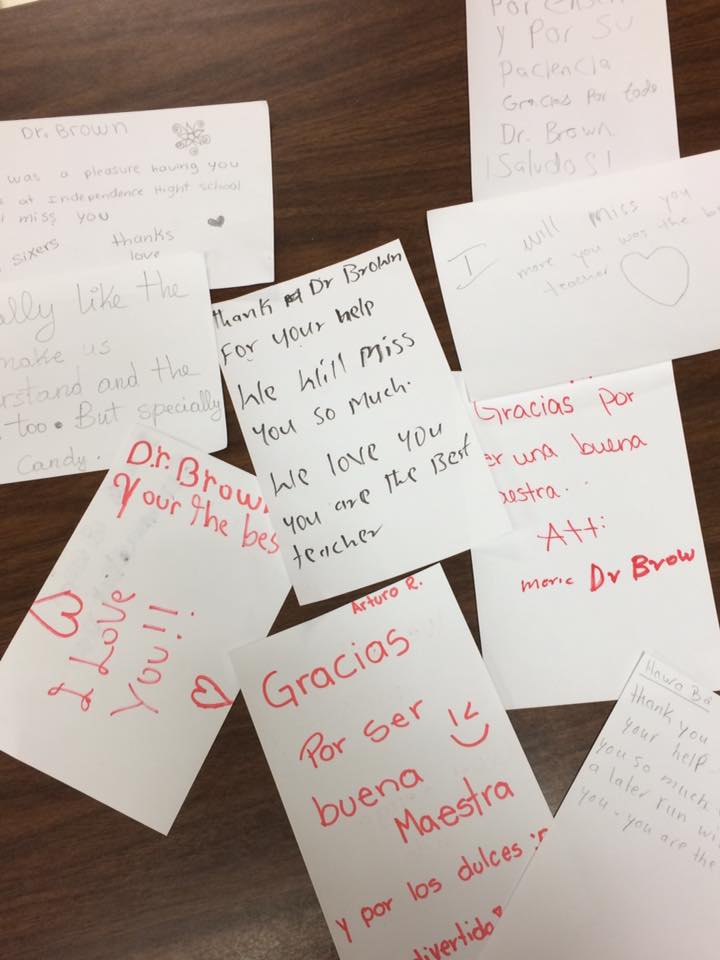 Por
y Por Su
Paciencia
Gracias Por todo
Dr. Brown
¡Saludos!
Dr. Brown
was a pleasure having you
at Independence Hight school
miss you
sixers
thanks
love
I will miss you
more you was the
teacher
ally like the
make us
rstand and the
too. But specially
Candy.
thank Dr Brown
For your help
We Will Miss
you so much.
We love you
you are the Best
teacher
Gracias por
er una buena
aestra.
Att:
Dr Brow
D.r. Brown
Your the bes
I Love
You!!
Arturo R.
Gracias
Por ser
buena
Maestra
y por los dulces
divertido
Hawa Ba
thank you
your help
you so much.
a later run wi
you - you are the